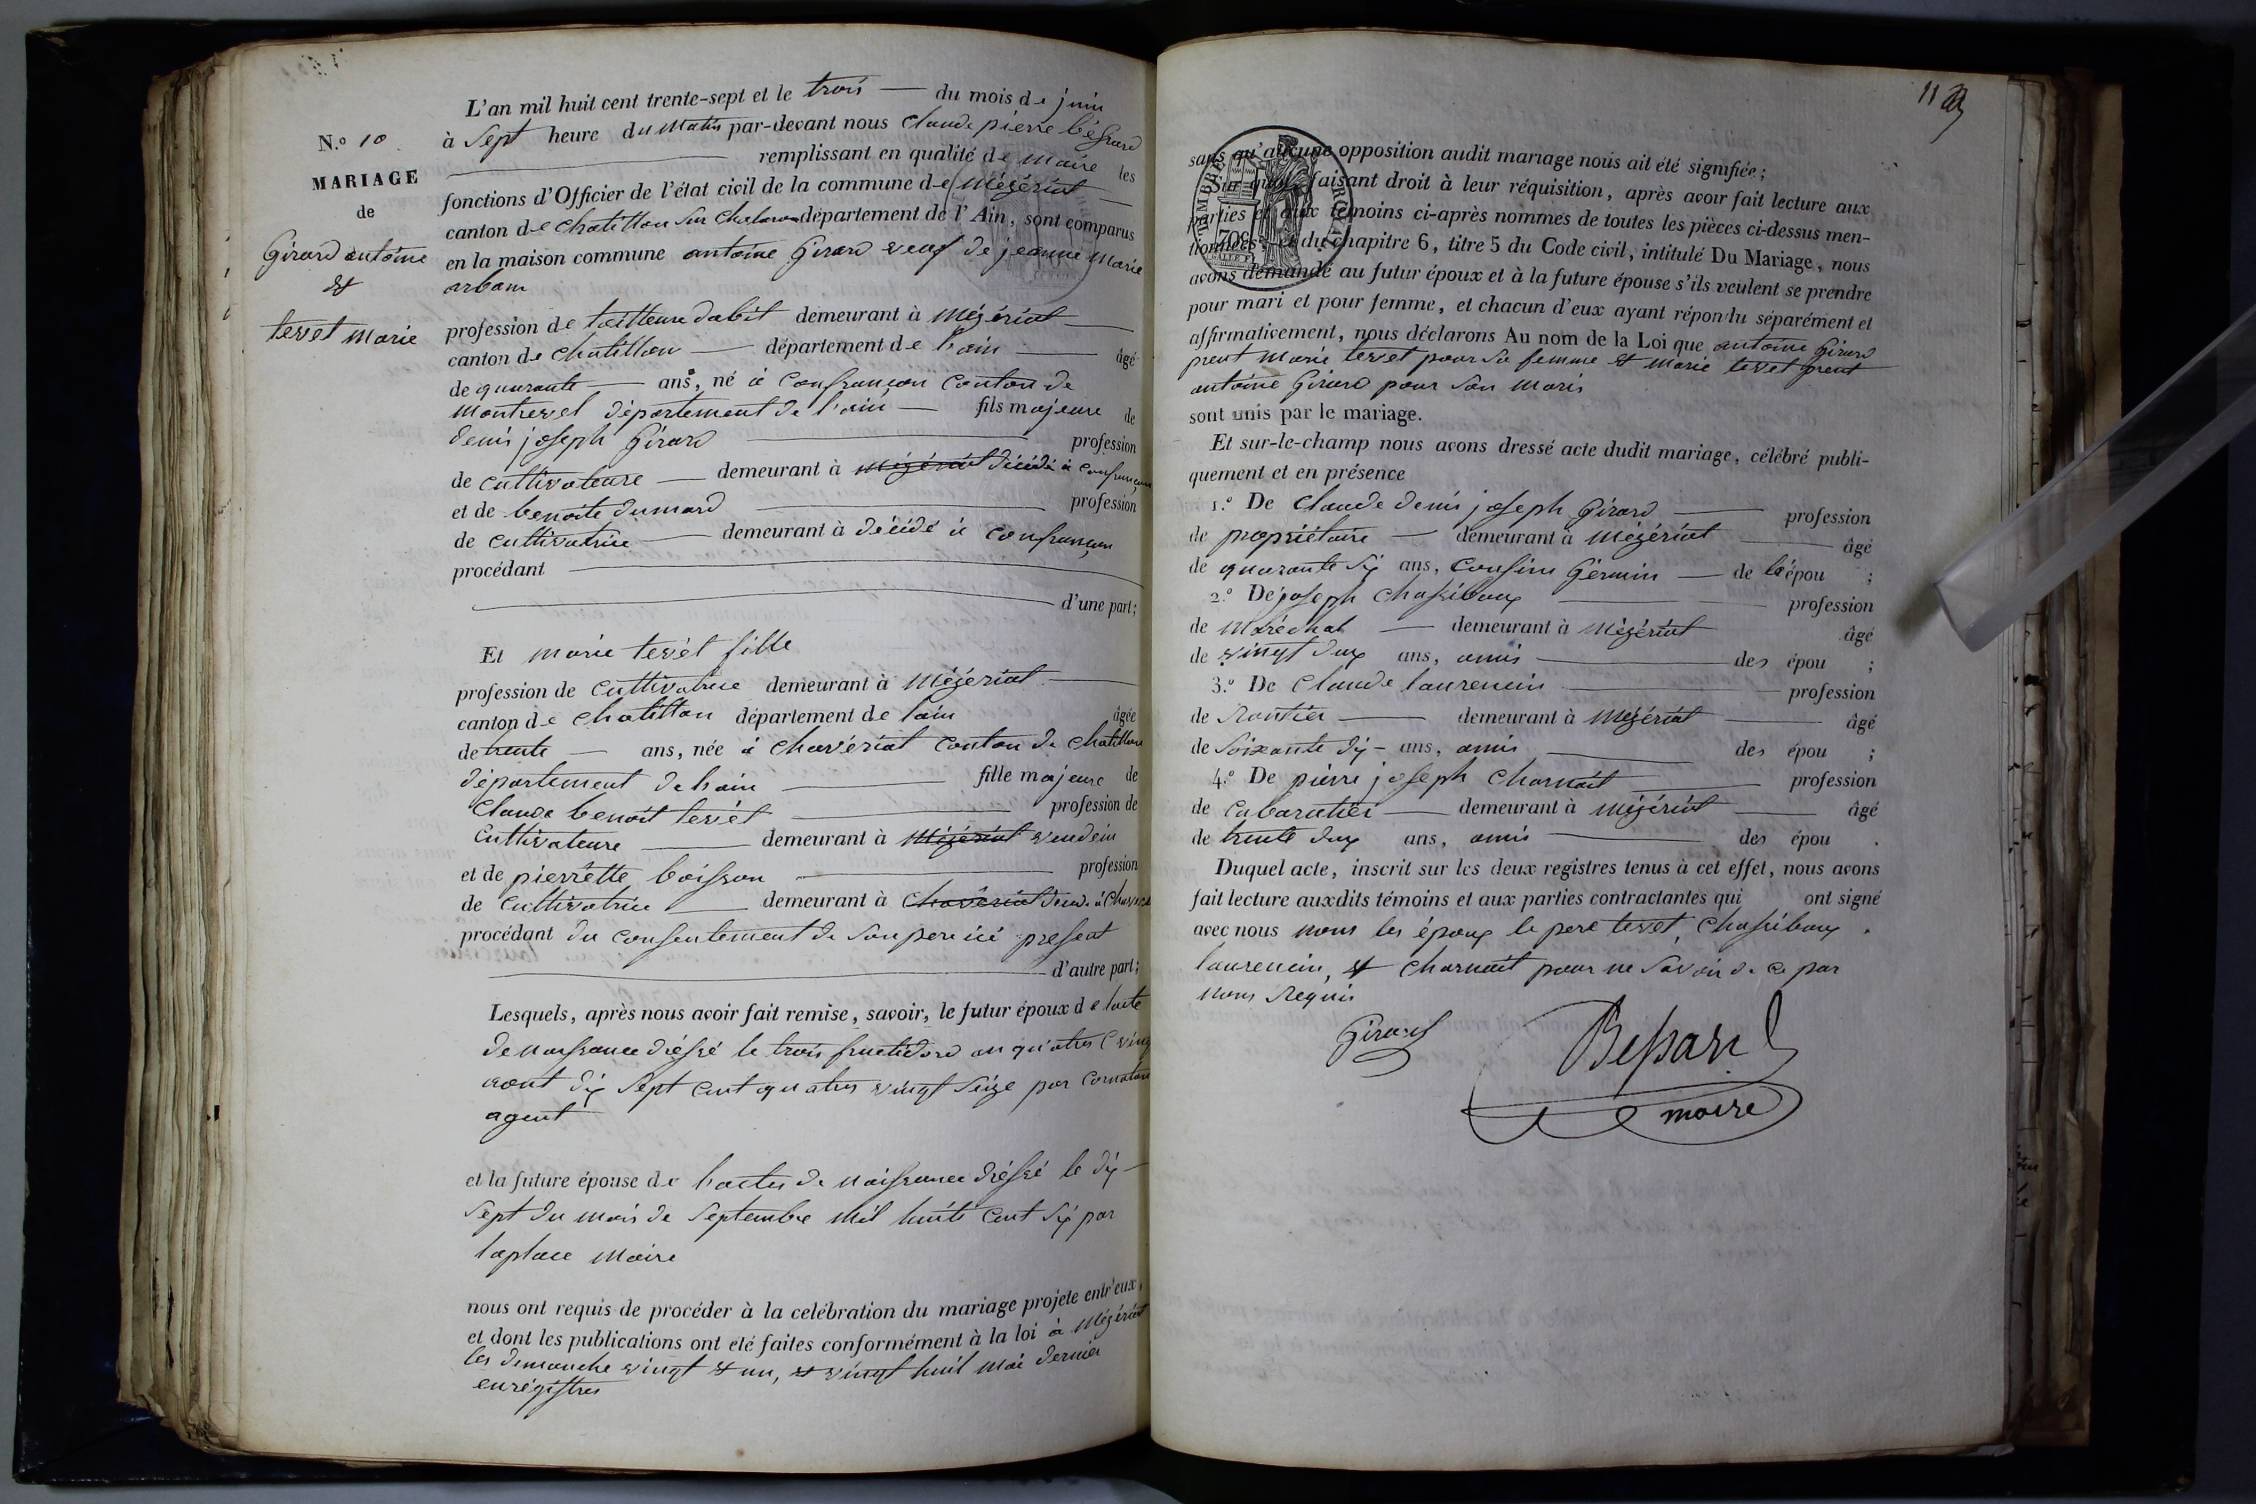 N.º 10
MARIAGE
de
Girard antoine
et
tevet marie
L'an mil huit cent trente-sept et le trois du mois de juin
à Sept heure du matin par-devant nous Claude pierre béssard
remplissant en qualité de maire les
fonctions d'Officier de l'état civil de la commune de Mézériat
canton de Chatillon sur Chalaronne département de l'Ain, sont comparus
en la maison commune antoine Girard veuf de jeanne marie
arbam
profession de tailleure dabit demeurant à Mézériat
canton de Chatillon département de lain âgé
de quarante ans, né à Confrançon Conton de
Montrevel département de l'ain fils majeure de
denis joseph Girard profession
de Cultivateure demeurant à Mézériat décédé à Confrançon
et de benoite dumard profession
de Cultivatrice demeurant à décédé à Confrançon
procédant
d'une part;
Et marie tevét fille
profession de Cultivatrice demeurant à Mézériat
canton de Chatillon département de lain âgée
de trente ans, née à Chavériat Conton de Chatillon
département de lain fille majeure de
Claude benoit tevét profession de
Cultivateure demeurant à Mézériat vendein
et de pierrette boisson profession
de Cultivatrice demeurant à Chavériat
procédant du consentement de son pere ici présent
d'autre part;
Lesquels, après nous avoir fait remise, savoir, le futur époux de lacte
de naissance dréssé le trois fructidord an quatres
aout dix Sept cent quatres vingt Seize par Cornaton
agent
et la future épouse de l'actes de naissance dréssé le dix
Sept du mois de Septembre Mil huit cent six par
laplace Maire
nous ont requis de procéder à la celébration du mariage projete entr'eux,
et dont les publications ont eté faites conformément à la loi à Mézériat
les dimanche vingt et un, et vingt huit mai dernier
enrégistres
11
TIMBRE ROYAL
70c
sans qu'aucune opposition audit mariage nous ait été signifiée;
Sur quoi, faisant droit à leur réquisition, après avoir fait lecture aux
parties et aux témoins ci-après nommés de toutes les pièces ci-dessus men-
tionnées, et du chapitre 6, titre 5 du Code civil, intitulé Du Mariage, nous
avons demandé au futur époux et à la future épouse s'ils veulent se prendre
pour mari et pour femme, et chacun d'eux ayant répondu séparément et
affirmativement, nous déclarons Au nom de la Loi que antoine Girard
prent Marie tevet pour sa femme et Marie tevet prent
antoine Girard pour son maris
sont unis par le mariage.
Et sur-le-champ nous avons dressé acte dudit mariage, célébré publi-
quement et en présence
1.º De Claude denis joseph Girard profession
de propriétaire demeurant à Mézériat âgé
de quarante six ans, Cousins Germin de l'épou ;
2.º De joseph Chassiboux profession
de Maréchal demeurant à Mézériat âgé
de vingt deux ans, amis des épou ;
3.º De Claude laurencin profession
de Rantier demeurant à Mézériat âgé
de Soixante dix ans, amis des épou ;
4.º De pierre joseph Charnait profession
de Cabaratier demeurant à Mézériat âgé
de trente deux ans, amis des épou .
Duquel acte, inscrit sur les deux registres tenus à cet effet, nous avons
fait lecture auxdits témoins et aux parties contractantes qui ont signé
avec nous nons les époux le pere tevet, Chassiboux
laurencin, et Charnait pour ne savoir de ce par
nous Requis
Girard
Bessard
maire